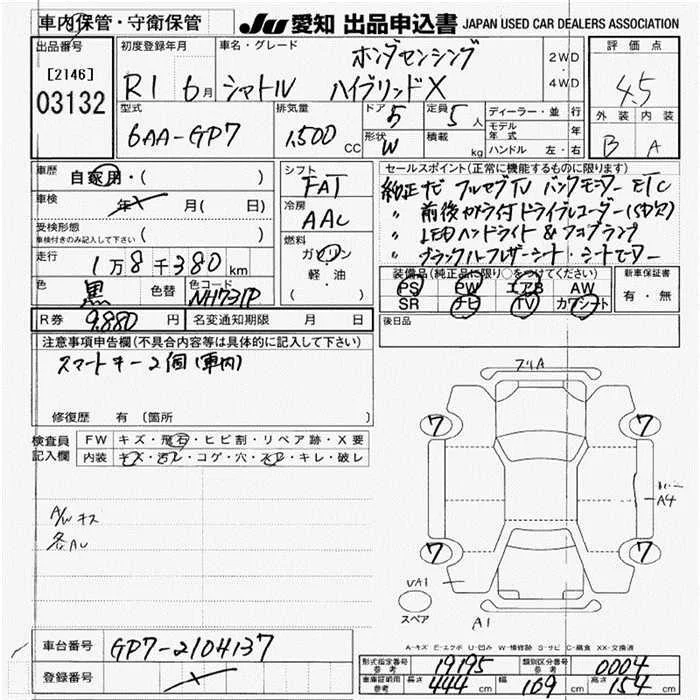 車内保管・守衛保管
JU 愛知 出品申込書 JAPAN USED CAR DEALERS ASSOCIATION
出品番号
[2146]
03132
初度登録年月
R1 6月
車名・グレード
ホンダセンシング
シャトル ハイブリッドX
2WD
・
4WD
評価点
4.5
外装 内装
B A
型式
6AA-GP7
排気量
1,500 CC
ドア 5
定員 5人
形状 W
積載 kg
ディーラー・並 行
モデル年式 年
ハンドル 左・右
車歴
自家用・( )
車検
年 月( 日)
受検形態
車検付きのみ記入して下さい ( )
走行
1万8千380km
色
黒
色替
色コード
NH731P
シフト
FAT
冷房
AAC
燃料
ガソリン
・
軽・油
( )
セールスポイント(正常に機能するものに限ります)
純正ナビ フルセグTV バックモニター ETC
〃 前後カメラ付ドライブレコーダー(SD欠)
〃 LEDヘッドライト & フォグランプ
〃 ブラックハーフレザーシート・シートヒーター
装備品(純正品に限り○をつけてください)
PS PW エアB AW
SR ナビ TV カワシート
新車保証書
有・無
R券 9,880円
名変通知期限 月 日
後日品
注意事項申告欄(不具合内容等は具体的に記入して下さい)
スマートキー2個(車内)
修復歴 有 〔箇所
検査員
記入欄
FW キズ・飛石・ヒビ割・リペア跡・X要
内装 キズ・汚レ・コゲ・穴・スレ・キレ・破レ
A/Wキズ
各AU
フリA
7 7
A4
7 7
UA1
スペア
A1
A-キズ E-エクボ U-凹み W-補修跡 S-サビ C-腐食 XX-交換済
車台番号
GP7-2104137
登録番号
形式指定番号
参考
19195
類別区分番号
参考
0004
車庫証明用
参考
長さ 444 cm 幅 169 cm 高さ 154 cm